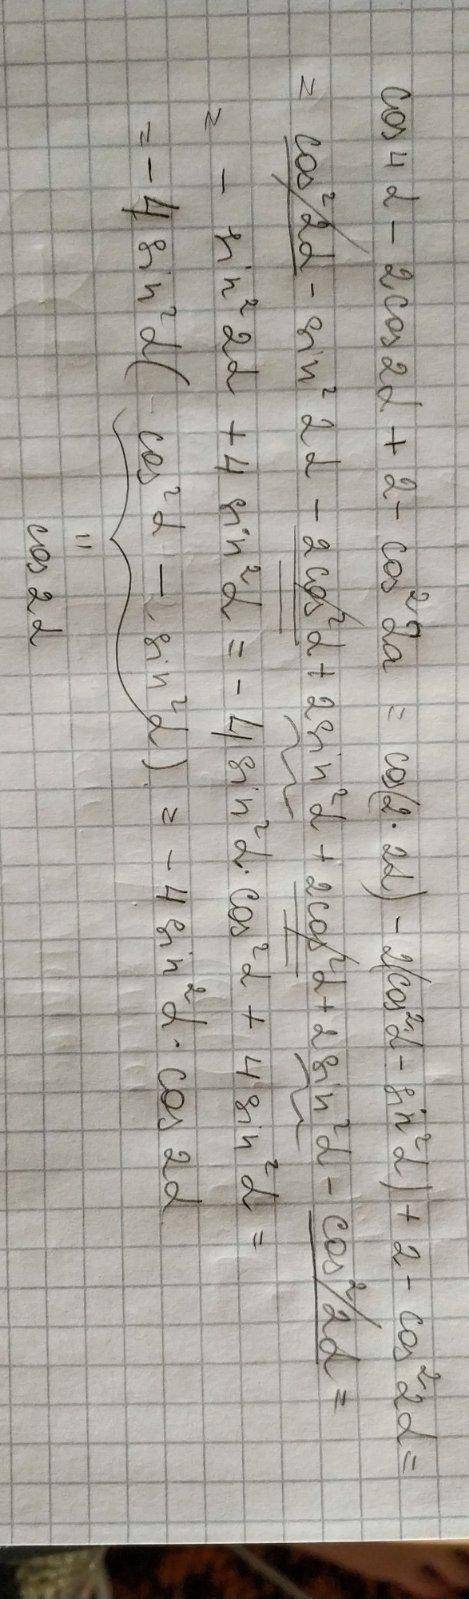 cos4α - 2cos2α + 2 - cos²2α = cos(2·2α) - 2(cos²α - sin²α) + 2 - cos²2α =
= cos²2α - sin²2α - 2cos²α + 2sin²α + 2cos²α + 2sin²α - cos²2α =
= - sin²2α + 4sin²α = - 4sin²α·cos²α + 4sin²α =
= - 4sin²α( cos²α - sin²α) = - 4sin²α·cos2α
"
cos2α